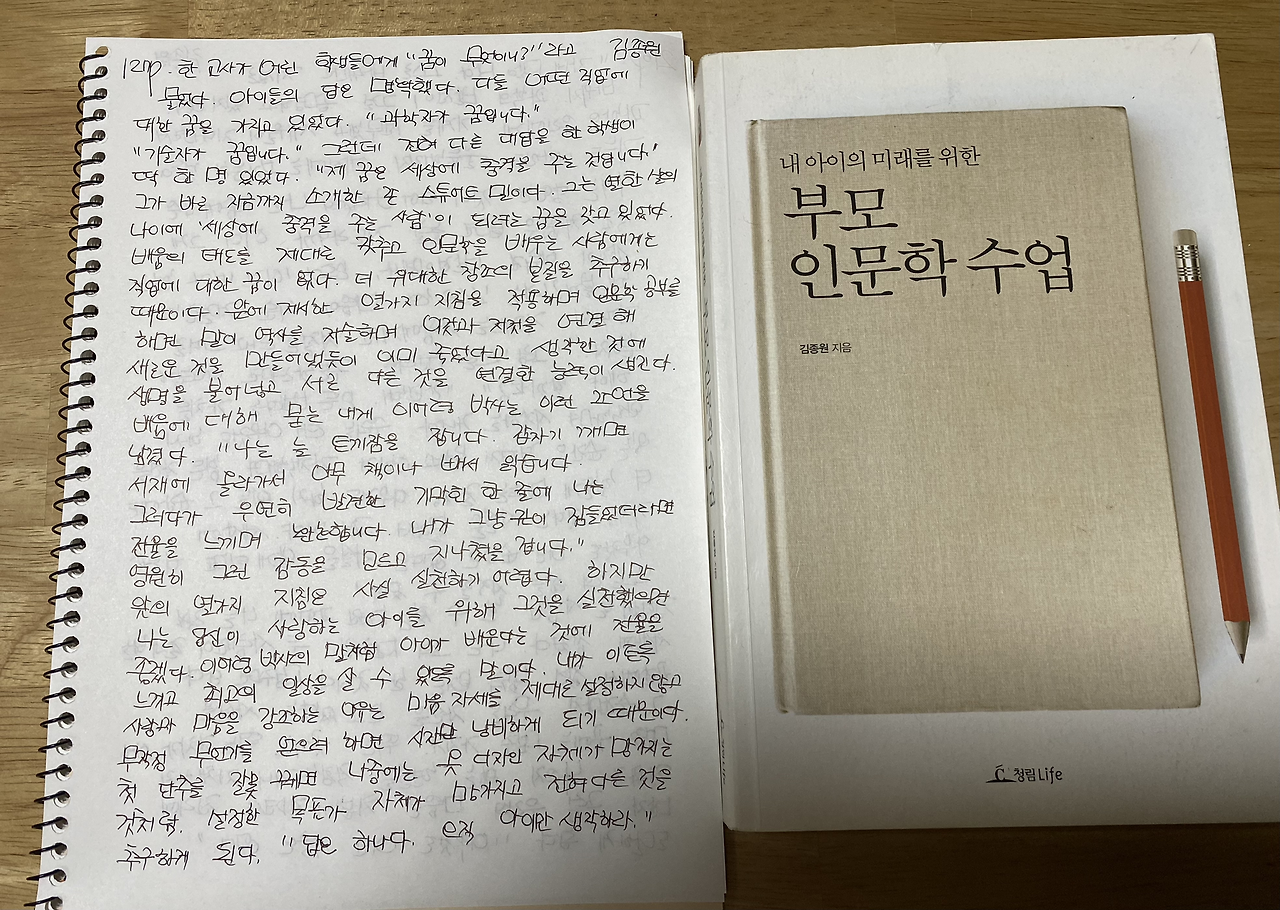 120p. 한 교사가 어린 학생들에게 "꿈이 무엇이니?" 라고 김종원
물었다. 아이들의 답은 명백했다. 다들 어떤 직업에
대한 꿈을 가지고 있었다. "과학자가 꿈입니다."
"기술자가 꿈입니다." 그런데 전혀 다른 대답을 한 학생이
딱 한 명 있었다. "제 꿈은 세상에 충격을 주는 것입니다."
그가 바로 지금까지 소개한 존 스튜어트 밀이다. 그는 열한 살의
나이에 '세상에 충격을 주는 사람'이 되려는 꿈을 갖고 있었다.
배움의 태도를 제대로 갖추고 인문학을 배우는 사람에게는
직업에 대한 꿈이 없다. 더 위대한 창조의 본질을 추구하기
때문이다. 앞에 제시한 열가지 지침을 적용하며 인문학 공부를
하면 밀이 역사를 저술하며 이것과 저것을 연결 해
새로운 것을 만들어냈듯이 이미 죽었다고 생각한 것에
생명을 불어넣고 서로 다른 것을 연결한 능력이 생긴다.
배움에 대해 묻는 내게 이어령 박사는 이런 조언을
남겼다. "나는 늘 토끼잠을 잡니다. 갑자기 깨면
서재에 올라가서 아무 책이나 빼서 읽습니다.
그러다가 우연히 발견한 기막힌 한 줄에 나는
전율을 느끼며 안도합니다. 내가 그냥 귀찮이 잠들었더라면
영원히 그런 감동을 모르고 지나쳤을 겁니다."
앞의 열가지 지침은 사실 실천하기 어렵다. 하지만
나는 당신이 사랑하는 아이를 위해 그것을 실천했으면
좋겠다. 이어령 박사의 말처럼 아이가 배운다는 것에 전율을
느끼고 최고의 일상을 살 수 있도록 말이다. 내가 이토록
사랑과 마음을 강조하는 이유는 마음 자세를 제대로 설정하지 않고
무작정 무언가를 얻으려 하면 시간만 낭비하게 되기 때문이다.
첫 단추를 잘못 꿰면 나중에는 옷 디자인 자체가 망가지는
것처럼, 설정한 목표가 자체가 망가지고 전혀 다른 것을
추구하게 된다. "답은 하나다. 오직 아이만 생각하라."
내 아이의 미래를 위한
부모
인문학 수업
김종원 지음
청림Life